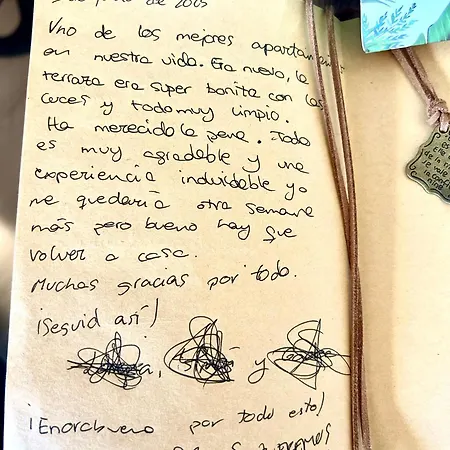 de 2005
Uno de los mejores apartamen
en nuestra vida. Era nuevo, la
terraza era super bonita con las
luces y todo muy limpio.
Ha merecido la pena. Todo
es muy agradable y una
experiencia induidable yo
me quedaría otra semana
más pero bueno hay que
volver a casa.
Muchas gracias por todo.
¡Seguid así!
y
¡Enorabuena por todo esto!